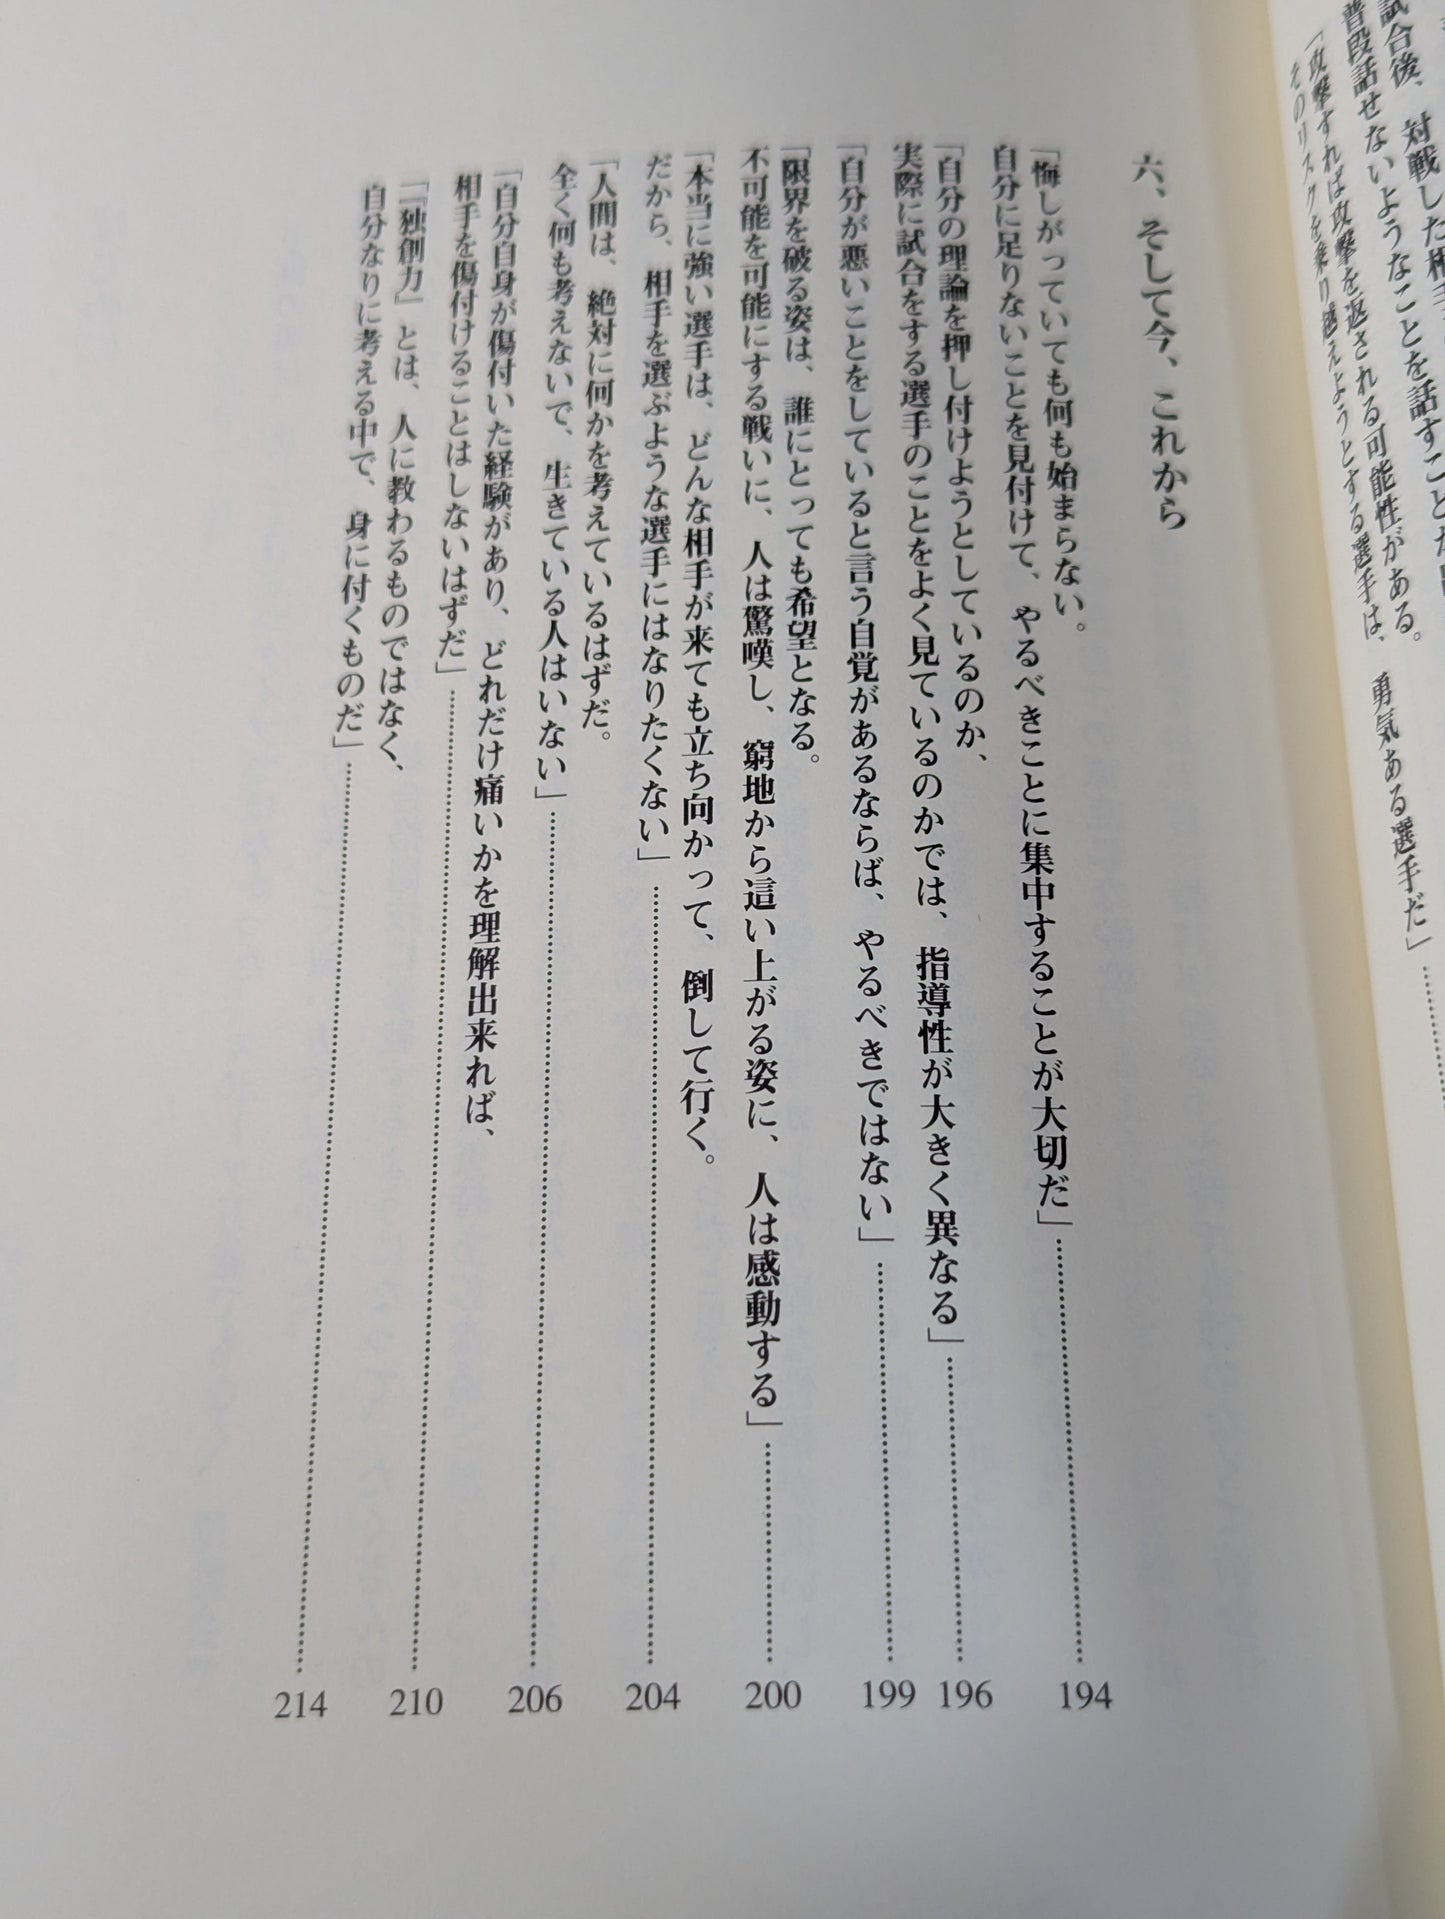 試合後、対戦した相手
普段話せないようなことを話すこと
「攻撃すれば攻撃を返される可能性がある。
そのリスクを乗り越えようとする選手は、勇気ある選手だ」
六、そして今、これから
「悔しがっていても何も始まらない。
自分に足りないことを見付けて、やるべきことに集中することが大切だ」 194
「自分の理論を押し付けようとしているのか、
実際に試合をする選手のことをよく見ているのかでは、指導性が大きく異なる」 196
「自分が悪いことをしていると言う自覚があるならば、やるべきではない」 199
「限界を破る姿は、誰にとっても希望となる。
不可能を可能にする戦いに、人は驚嘆し、窮地から這い上がる姿に、人は感動する」 200
「本当に強い選手は、どんな相手が来ても立ち向かって、倒して行く。
だから、相手を選ぶような選手にはなりたくない」 204
「人間は、絶対に何かを考えているはずだ。
全く何も考えないで、生きている人はいない」 206
「自分自身が傷付いた経験があり、どれだけ痛いかを理解出来れば、
相手を傷付けることはしないはずだ」 210
「「独創力」とは、人に教わるものではなく、
自分なりに考える中で、身に付くものだ」 214